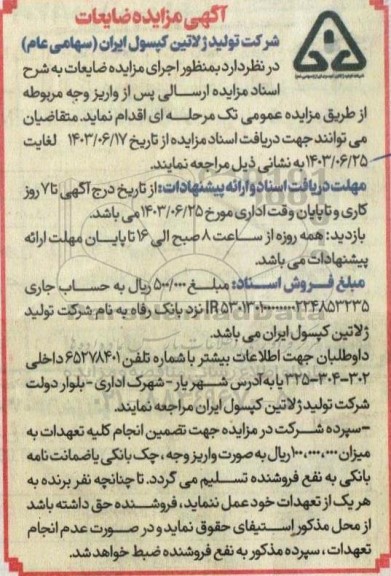 آگهی مزایده ضایعات
شرکت تولید ژلاتین کپسول ایران (سهامی عام)
در نظر دارد بمنظور اجرای مزایده ضایعات به شرح
اسناد مزایده ارسالی پس از واریز وجه مربوطه
از طریق مزایده عمومی تک مرحله ای اقدام نماید. متقاضیان
می توانند جهت دریافت اسناد مزایده از تاریخ ۱۴۰۳/۰۶/۱۷ لغایت
۱۴۰۳/۰۶/۲۵ به نشانی ذیل مراجعه نمایند.
مهلت دریافت اسناد و ارائه پیشنهادات: از تاریخ درج آگهی تا ۷ روز
کاری و تا پایان وقت اداری مورخ ۱۴۰۳/۰۶/۲۵ می باشد.
بازدید: همه روزه از ساعت ۸ صبح الی ۱۶ تا پایان مهلت ارائه
پیشنهادات می باشد.
مبلغ فروش اسناد: مبلغ ۵۰۰/۰۰۰ ریال به حساب جاری
نزد بانک رفاه به نام شرکت تولید
ژلاتین کپسول ایران می باشد.
داوطلبان جهت اطلاعات بیشتر با شماره تلفن ۶۵۲۷۸۴۰۱ داخلی
۳۰۲-۳۰۴-۳۲۵ یا به آدرس شهریار - شهرک اداری - بلوار دولت
شرکت تولید ژلاتین کپسول ایران مراجعه نمایند.
-سپرده شرکت در مزایده جهت تضمین انجام کلیه تعهدات به
میزان ۱۰۰،۰۰۰،۰۰۰ ریال به صورت واریز وجه، چک بانکی یا ضمانت نامه
بانکی به نفع فروشنده تسلیم می گردد. تا چنانچه نفر برنده به
هر یک از تعهدات خود عمل ننماید، فروشنده حق داشته باشد
از محل مذکور استیفای حقوق نماید و در صورت عدم انجام
تعهدات، سپرده مذکور به نفع فروشنده ضبط خواهد شد.